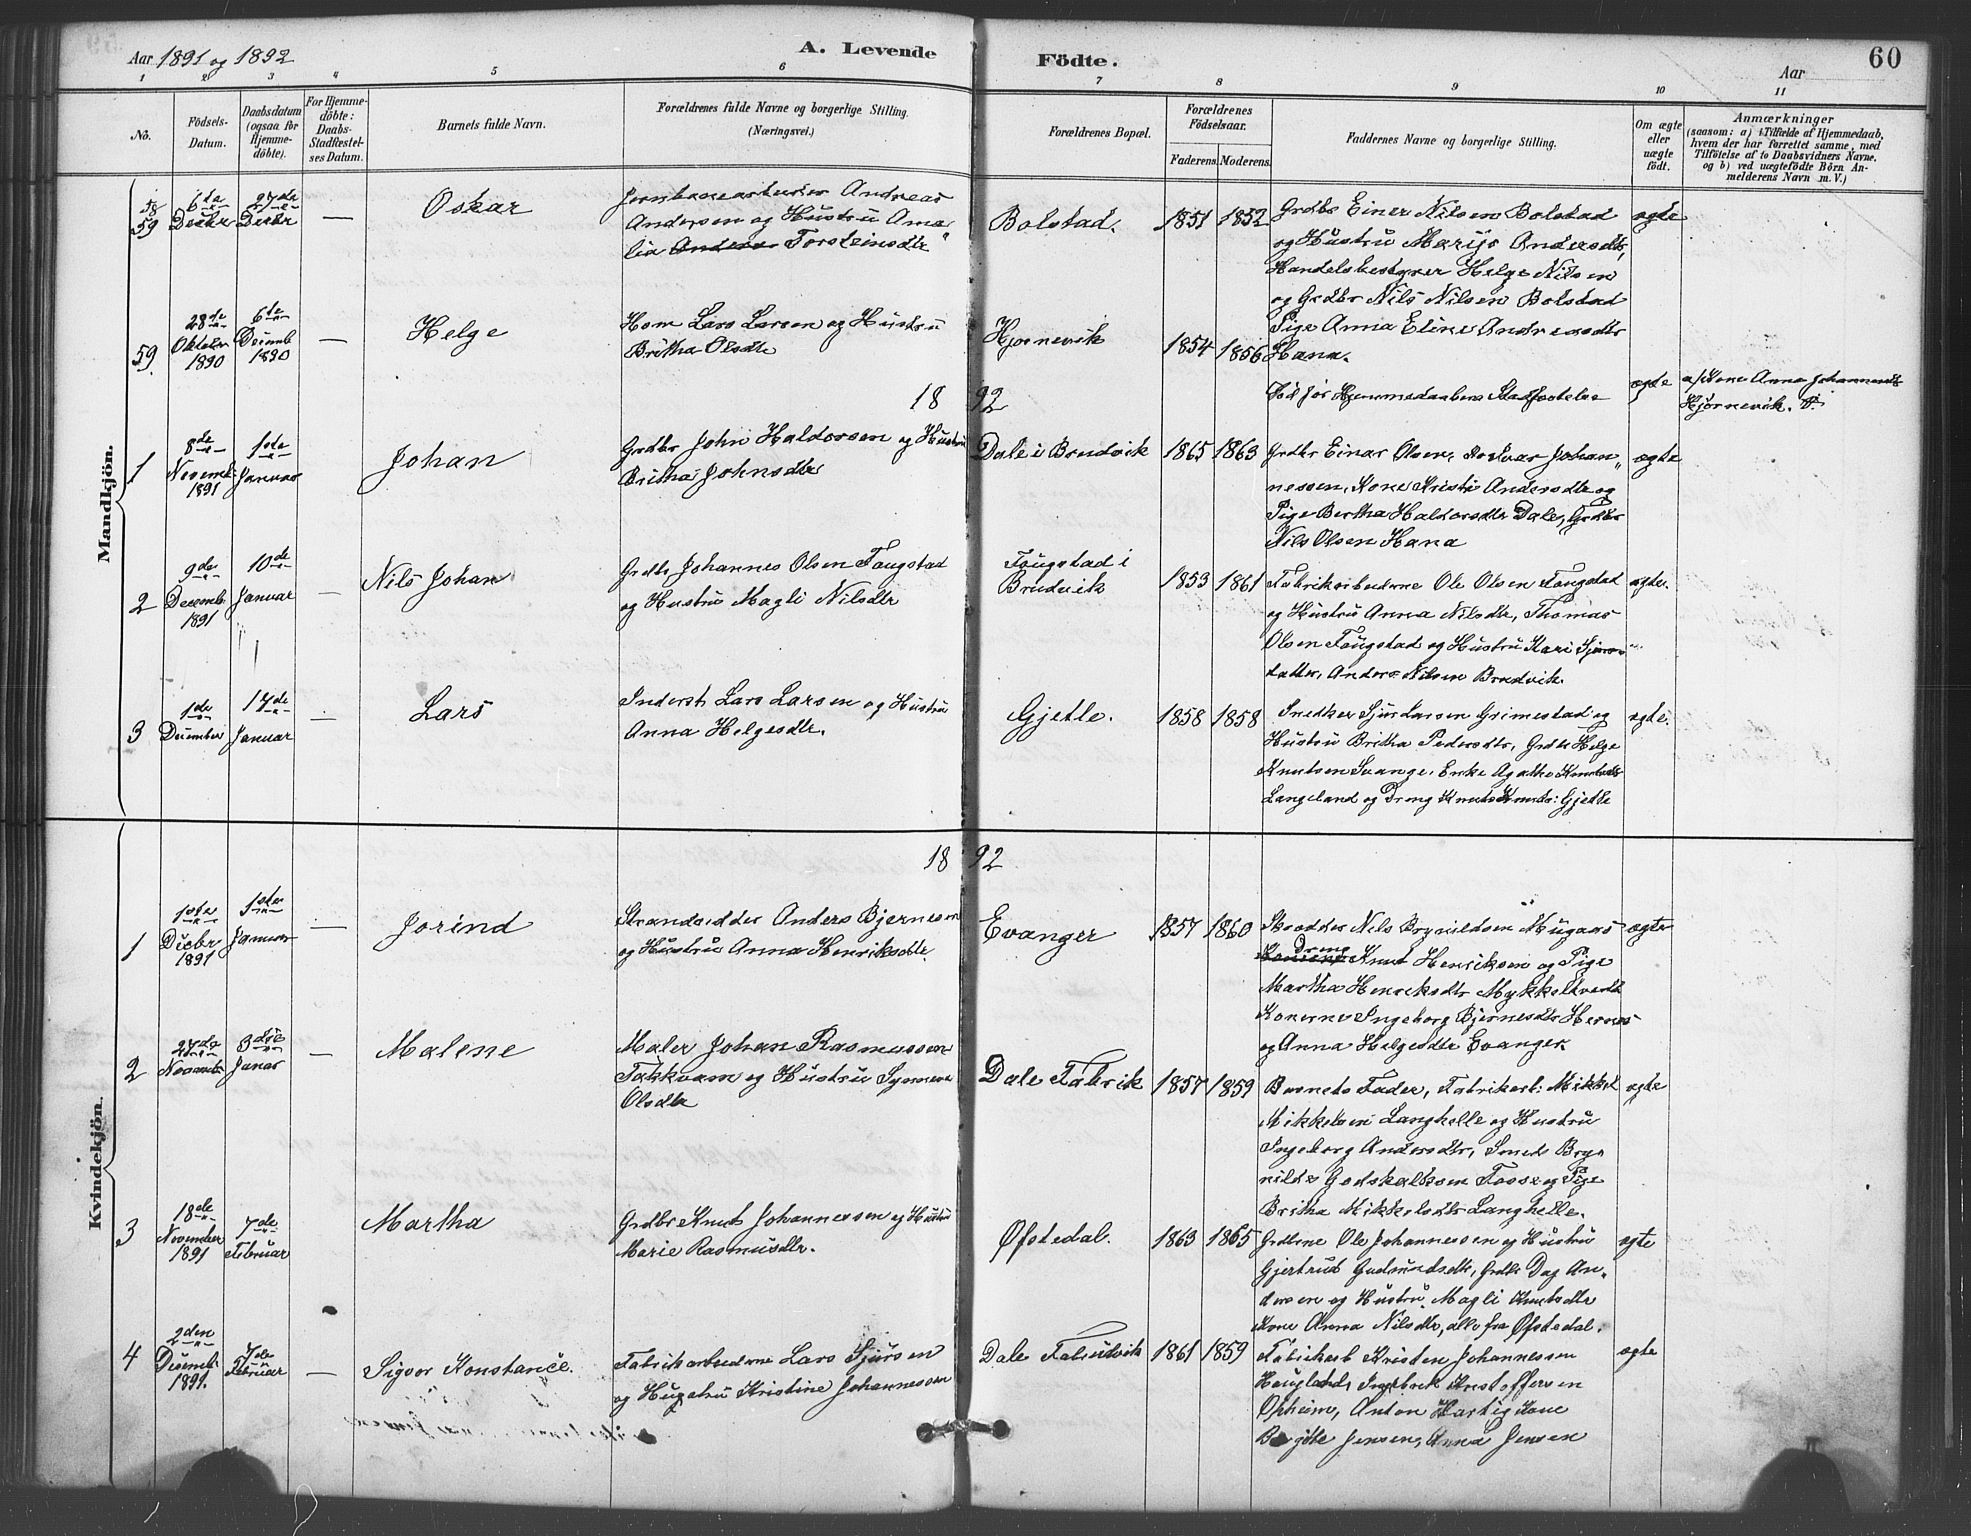 Aar 1891 og 1892
A. Levende
Födte.
Aar
60
1 2 3 4 5 6 7 8 9 10 11
No.
Födsels-
Datum.
Daabsdatum
(ogsaa for
Hjemme-
döbte).
For Hjemme-
döbte:
Daabs-
Stadfæstel-
ses Datum.
Barnets fulde Navn.
Forældrenes fulde Navne og borgerlige Stilling.
(Næringsvei.)
Forældrenes Bopæl.
Forældrenes
Födselsaar.
Faderens. Moderens.
Faddernes Navne og borgerlige Stilling.
Om ægte
eller
uægte
födt.
Anmærkninger
(saasom: a) i Tilfælde af Hjemmedaab,
hvem der har forrettet samme, med
Tilföielse af to Daabsvidners Navne,
og b) ved uægtefödte Börn An-
melderens Navn m. V.)
Mandkjön.
58
59
6te
Decbr
27de
Decbr
—
Oskar
Jernbanearbeider Andreas
Andersen og Hustru Ama-
lia Torsteinsdtr
Bolstad.
1851 1852
Grdbr Einer Nilsen Bolstad
og Hustru Andersdtr,
Handelsbestyrer Helge Nilsen
og Grdbr Nils Nilsen Bolstad
Pige Anna Eline Andreasdtr
Hana.
ægte
59.
28de
Oktober
1890
6te
Decemb
1890
—
Helge
Hsm Lars Larsen og Hustru
Britha Olsdtr
Hjørnevik
1854 1856
Död før Hjemmedaabens Stadfæstelse
ægte
a/ Kone Anna Johannesdtr
Hjørnevik.
18 92
1
8de
Novemb
1891
1ste
Januar
Johan
Grdbr John Haldorsen og Hustru
Britha Johnsdtr
Dale i Brudvik
1865 1863
Grdbr Einar Olsen, Johan-
nessen, Kone Kristi Andersdtr og
Pige Bertha Haldorsdtr Dale, Grdbr
Nils Olsen Hana
ægte
2
9de
Decemb
1891
10de
Januar
—
Nils Johan
Grdbr Johannes Olsen Fougstad
og Hustru Magli Nilsdtr
Fougstad i
Brudvik
1853 1861
Fabrikarbeiderne Ole Olsen Fougstad
og Hustru Anna Nilsdtr, Thomas
Olsen Fougstad og Hustru Kari
datter, Anders Nilsen Brudvik.
ægte.
3
1ste
December
17de
Januar
—
Lars
Inderst Lars Larsen og Hustru
Anna Helgesdtr.
Gjetle.
1858 1858
Snedker Sjur Larsen Grimestad og
Hustru Britha Pedersdtr, Grdbr Helge
Knutsen Svange, Enke Agathe Knutsdtr
Langeland og Dreng Knut Knuts: Gjetle
ægte.
Kvindekjön.
18 92
1
1ste
Decbr
1891
1ste
Januar
—
Jorind
Strandsidder Anders Bjernesen
og Hustru Anna Henriksdtr
Evanger
1857 1860
Skrædder Nils Brynildsen Mugaas
Dreng
Knut Henriksen og Pige
Martha Henriksdtr Mykkeltvedt
Konerne Ingeborg Bjernesdtr Hernes
og Anna Helgesdtr Evanger
ægte
2
27de
Novemb
3die
Januar
—
Malene
Maler Johan Rasmussen
Takkvam og Hustru Synneve
Olsdtr
Dale Fabrik
1857 1859
Barnets Fader, Fabrikarb: Mikkel
Mikkelsen Langhelle og Hustru
Ingeborg Andersdtr, Smed Bry-
nild Godskalksen Fosse og Pige
Britha Mikkelsdtr Langhelle.
ægte
3
18de
November
1891
7de
Februar
Martha
Grdbr Knut Johannessen og Hustru
Marie Rasmusdtr.
Øfstedal.
1863 1865
Grdbrne Ole Johannessen og Hustru
Gjertrud Gudmundsdtr, Grdbr Dag An-
dersen og Hustru Magli Knutsdtr
Kone Anna Nilsdtr, alle fra Øfstedal.
ægte
4
2den
Decemb.
1891.
7de
Februar
—
Sigvor Konstance.
Fabrikarbeiderne Lars Sjursen
og Hustru Kristine Johannessen
Dale Fabrik
1861 1859
Fabrikarb Kristen Johannessen
Haugland, Kristoffersen
Opheim, Anton Hartig Kone
Jensen, Anna Jensen
ægte